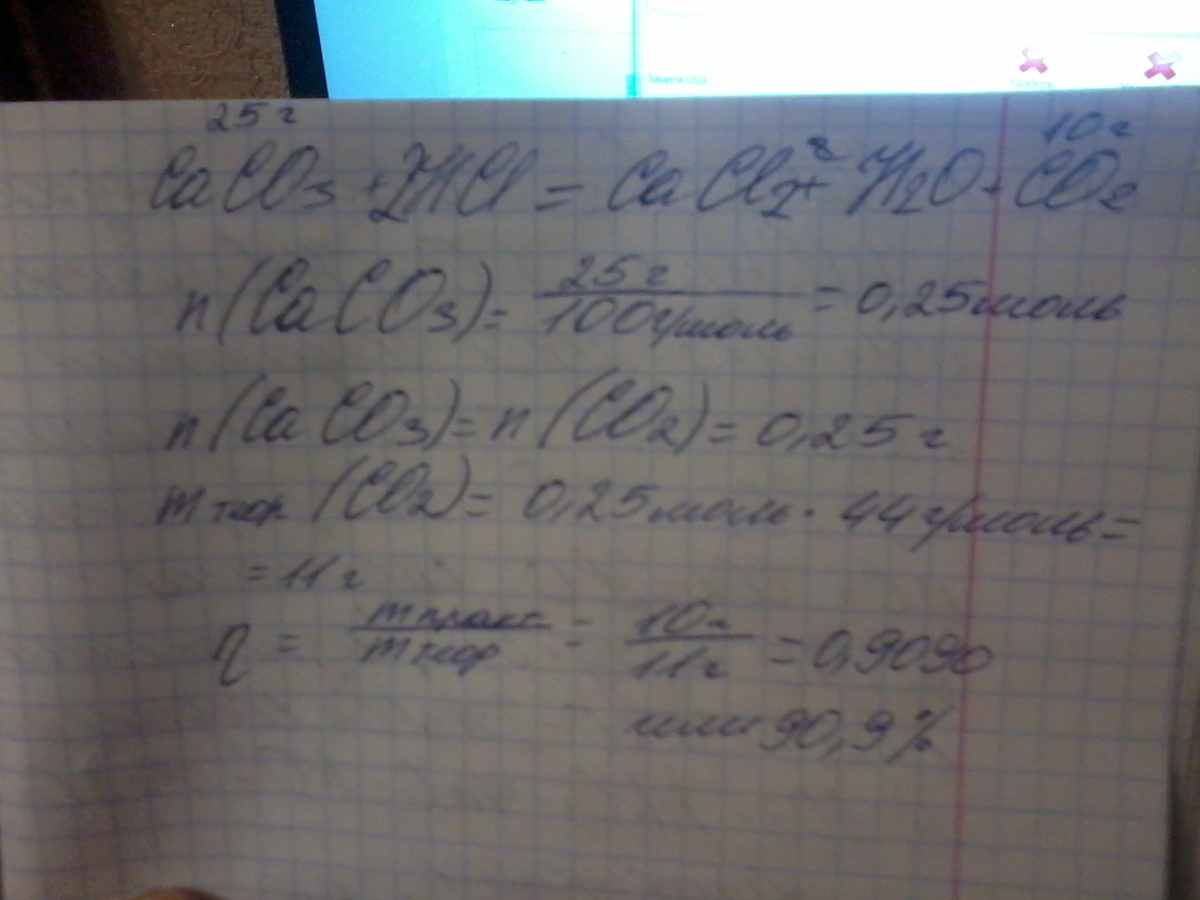 Защита USB
25 г 10 г
CaCO3 + 2HCl = CaCl2 + H2O + CO2
n(CaCO3) = 25 г / 100 г/моль = 0,25 моль
n(CaCO3) = n(CO2) = 0,25 г
m теор (CO2) = 0,25 моль · 44 г/моль =
= 11 г
η = m практ / m теор = 10 г / 11 г = 0,9090
или 90,9%